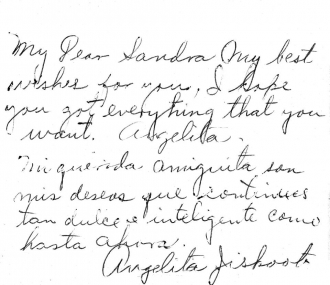 My Dear Sandra My best
wishes for you, I hope
you got everything that you
want. Angelita.
Mi querida amiguita son
mis deseos que continues
tan dulce e inteligente como
hasta ahora.
Angelita